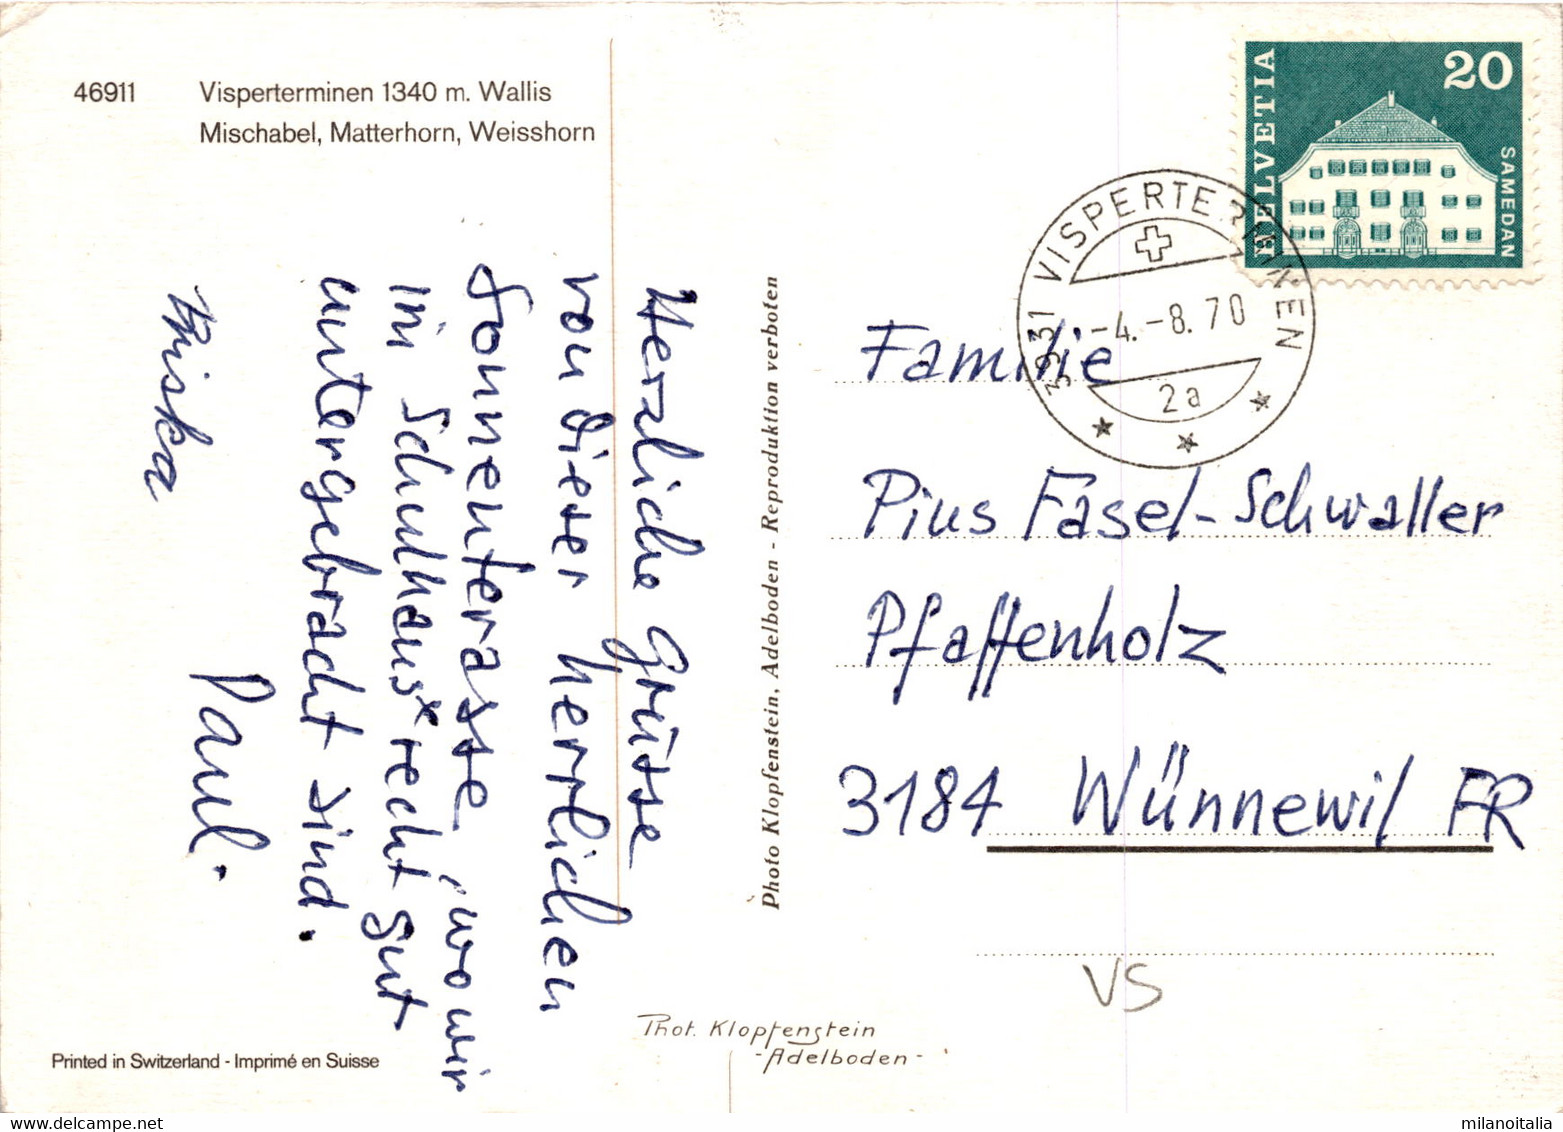 46911 Visperterminen 1340 m. Wallis
Mischabel, Matterhorn, Weisshorn
Herzliche Grüsse
von dieser herrlichen
Sonnenterasse, wo wir
im Schulhaus x recht gut
untergebracht sind.
Priska Paul.
Printed in Switzerland - Imprimé en Suisse
Photo Klopfenstein, Adelboden - Reproduktion verboten
Phot. Klopfenstein
- Adelboden -
HELVETIA
20
SAMEDAN
3931 VISPERTERMINEN
-4.-8.70
2a
Familie
Pius Fasel-Schwaller
Pfaffenholz
3184 Wünnewil FR
VS
milanoitalia